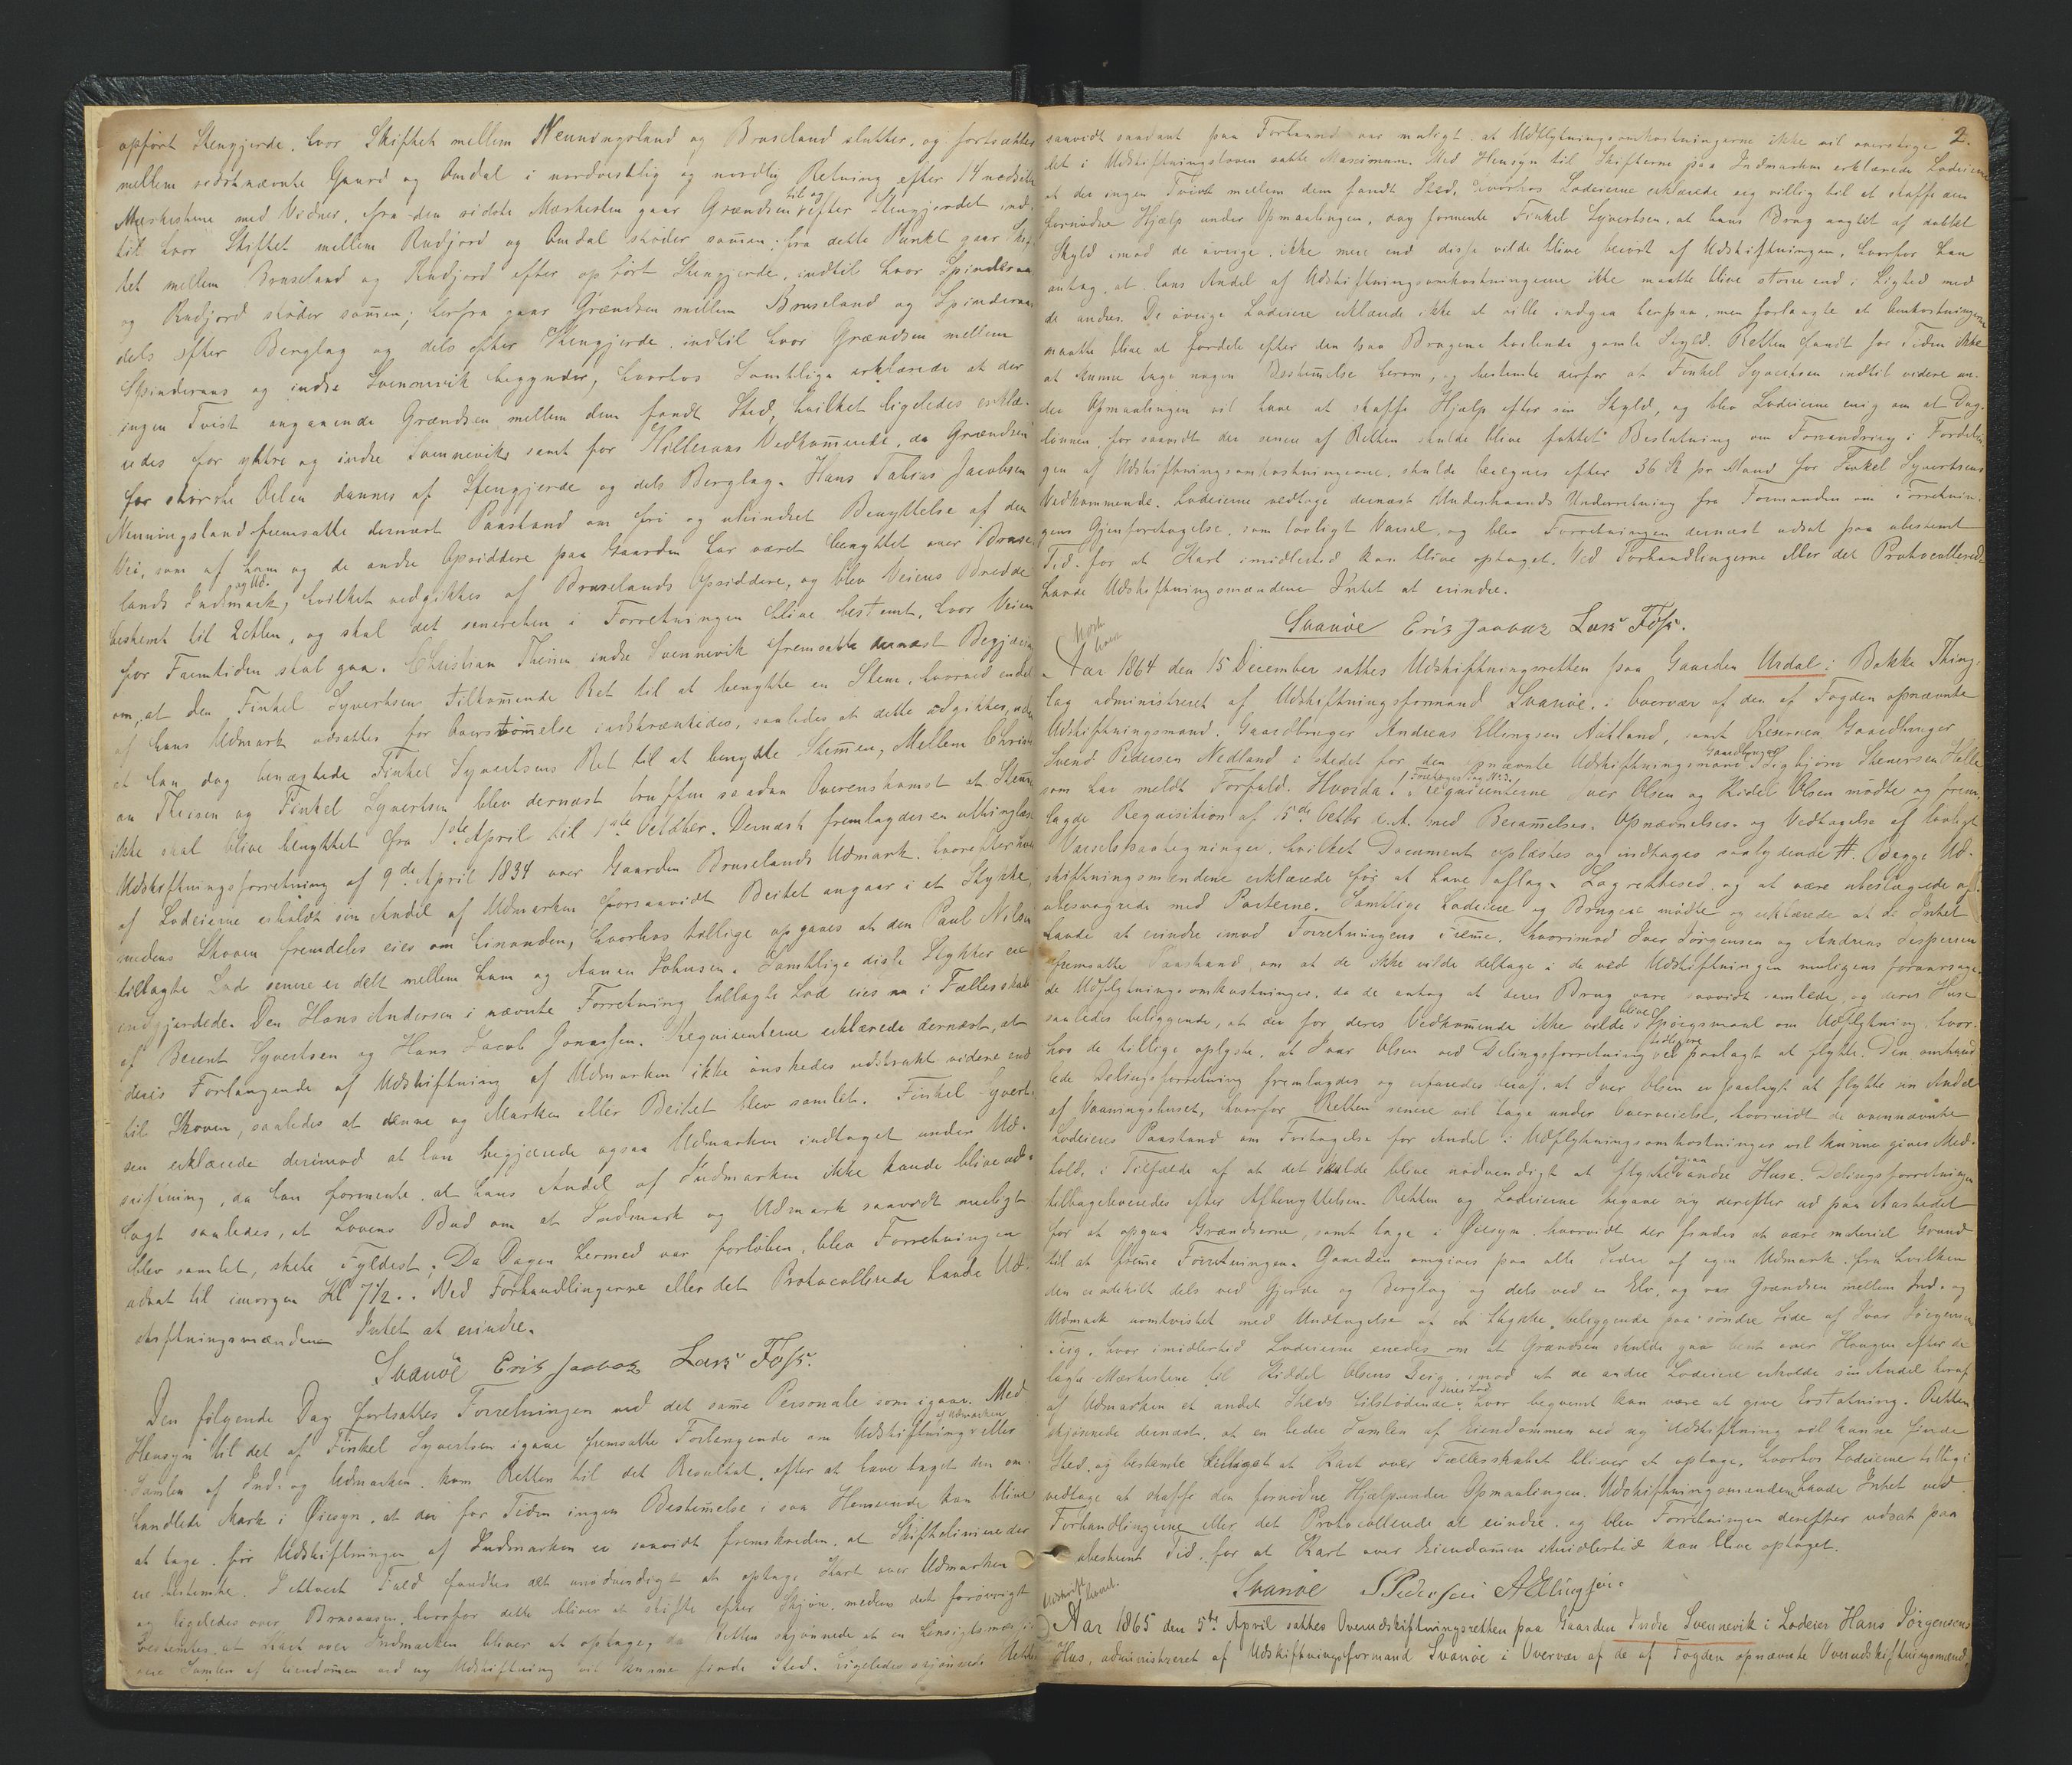 opført Stengjerde, hvor Skiftet mellem Nenningsland og Bruseland slutter, og fortsættes
mellem sidstnævnte Gaard og Omdal i nordvestlig og nordlig Retning efter 14 nedsatte
Merkestene med Vidner, fra den sidste Merkesten gaar Grændsen til og efter Stengjerdet ind-
til hvor Skiftet mellem Rudjord og Omdal støder sammen; fra dette Punkt gaar Skif-
tet mellem Bruseland og Rudjord efter opført Stengjerde, indtil hvor Spinderaas
og Rudjord støder sammen; herfra gaar Grændsen mellem Bruseland og Spinderaas
dels efter Berglag og dels efter Stengjerde, indtil hvor Grændsen mellem
Spinderaas og indre Svennevik begynder, hvorhos Samtlige erklærede at der
ingen Tvist angaaende Grændsen mellem dem fandt Sted, hvilket ligeledes erklæ-
redes for yttre og indre Svenneviks samt for Hilleraas Vedkommende, da Grændsen
for største Delen dannes af Stengjerde og dels Berglag. Hans Tobias Jacobsen
Nenningsland fremsatte dernæst Paastand om fri og uhindret Benyttelse af den
Vei, som af ham og de andre Opsiddere paa Gaarden har været benyttet over Bruse-
lands Indmark og Ud-, hvilket vedgikkes af Bruselands Opsiddere, og blev Veiens Bredde
bestemt til 2 Alen, og skal det senerehen i Forretningen blive bestemt, hvor Veien
for Fremtiden skal gaa. Christian Theisen indre Svennevik fremsatte dernæst Begjæring
om, at den Finkel Syvertsen tilkommende Ret til at benytte en Stem, hvorved endel
af hans Udmark udsattes for Oversvømmelse indskrænkedes, saaledes at dette undgikkes, uden
at han dog benægtede Finkel Syvertsens Ret til at benytte Stemmen, Mellem Christi-
an Theisen og Finkel Syvertsen blev dernæst truffen saadan Overenskomst at Stemmen
ikke skal blive benyttet fra 1ste April til 1ste Octbher. Dernæst fremlagdes en uthinglæst
Udskiftningsforretning af 9de April 1834 over Gaarden Bruselands Udmark, hvorefter hver
af Lodeierne erholdt sin Andel af Udmarken forsaavidt Beitet angaar i et Stykke,
medens Skoven fremdeles eies om hinanden, hvorhos tillige opgaves at den Paul Nilsen
tillagte Lod senere er delt mellem ham og Aanen Johnsen. Samtlige disse Stykker ere
indgjerdede. Den Hans Andersen i nævnte Forretning tillagte Lod eies nu i Fællesskab
af Berent Syvertsen og Hans Jacob Jonassen. Requirenterne erklærede dernæst, at
deres Forlangende af Udskiftning af Udmarken ikke ønskedes udstrakt videre end
til Skoven, saaledes at denne og Marken eller Beitet blev samlet. Finkel Syvert-
sen erklærede derimod at han begjærede ogsaa Udmarken indtaget under Ud-
skiftning, da han formente, at hans Andel af Indmarken ikke kunde blive ud-
lagt saaledes, at Lovens Bud om at Indmark og Udmark saavidt muligt
blev samlet, skete Fyldest. Da Dagen hermed var forløben, blev Forretningen
udsat til imorgen Kl 7 1/2. Ved Forhandlingerne eller det Protocollerede havde Ud-
skiftningsmændene Intet at erindre.
Svanøe Erik Jaabæk Lars Foss.
Den følgende Dag fortsattes Forretningen ved det samme Personale som igaar. Med
Hensyn til det af Finkel Syvertsen igaar fremsatte Forlangende om Udskiftning af Udmarken eller
Samlen af Ind- og Udmarken, kom Retten til det Resultat, efter at have taget den om-
handlede Mark i Øiesyn, at der for Tiden ingen Bestemmelse i saa Henseende kan blive
at tage, før Udskiftningen af Indmarken er saavidt fremskreden, at Skiftelinierne der
ere bestemte. I ethvert Fald fandtes det unødvendigt at optage Kart over Udmarken
og ligeledes over Bruseaasen, hvorfor dette bliver at skifte efter Skjøn, medens det forøvrigt
bestemtes, at Kart over Indmarken bliver at optage, da Retten skjønnede at en hensigtsmæssi-
gere Samlen af Eiendommen ved ny Udskiftning vil kunne finde Sted. Ligeledes skjønnede Retten
2.
saavidt saadant paa Forhaand var muligt, at Udflytningsomkostningerne ikke vil overstige
det i Udskiftningsloven satte Maximum. Med Hensyn til Skifterne paa Indmarken erklærede Lodeierne
at der ingen Tvist mellem dem fandt Sted, hvorhos Lodeierne erklærede sig villig til at skaffe den
fornødne Hjælp under Opmaalingen, dog formente Finkel Syvertsen, at hans Brug uagtet af dobbelt
Skyld imod de øvrige, ikke mere end disse vilde blive berørt af Udskiftningen, hvorfor han
antog, at hans Andel af Udskiftningsomkostningerne ikke maatte blive større end i Lighed med
de andres. De øvrige Lodeiere erklærede ikke at ville indgaa herpaa, men forlangte at Omkostningerne
maatte blive at fordele efter den paa Brugene hvilende gamle Skyld. Retten fandt for Tiden ikke
at kunne tage nogen Bestemmelse herom, og bestemte derfor at Finkel Syvertsen indtil videre un-
der Opmaalingen vil have at skaffe Hjælp efter sin Skyld, og blev Lodeierne enig om at Dag-
lønnen, for saavidt der senere af Retten skulde blive fattet Beslutning om Forandring i Fordelin-
gen af Udskiftningsomkostningerne, skulde beregnes efter 36 Sk pr Mand for Finkel Syvertsens
Vedkommende. Lodeierne vedtoge dernæst Underhaands Underretning fra Formanden om Forretnin-
gens Gjenforetagelse, som lovligt Varsel, og blev Forretningen dernæst udsat paa ubestemt
Tid, for at Kart imidlertid kan blive optaget. Ved Forhandlingerne eller det Protocollerede
havde Udskiftningsmændene Intet at erindre.
Svanøe Erik Jaabæk Lars Foss.
Aar 1864 den 15 December sattes Udskiftningsretten paa Gaarden Urdal i Bakke Thing-
lag administreret af Udskiftningsformand Svanøe, i Overvær af den af Fogden opnævnte
Udskiftningsmand, Gaardbruger Andreas Ellingsen Aatland, samt Reserven Gaardbruger
Svend Pedersen Nedland i stedet for den opnævnte Udskiftningsmand Gaardbruger Sigbjørn Stenersen Helle
som har meldt Forfald. Hvorda! Foretoges Sag No 3. Requirenterne Iver Olsen og Kidel Olsen mødte og frem-
lagde Requisition af 15de Octbr d. A. med Berammelses- Opnævnelses- og Vedtagelse af lovligt
Varsels paategninger, hvilket Document oplæstes og indtages saalydende #. Begge Ud-
skiftningsmændene erklærede før at have aflagt Lagrettesed, og at være ubeslægtede og
ubesvogrede med Parterne. Samtlige Lodeiere og Brugere mødte og erklærede at de Intet
havde at erindre imod Forretningens Fremme, hvorimod Iver Jørgensen og Andreas Jespersen
fremsatte Paastand om at de ikke vilde deltage i de ved Udskiftningen muligens foraarsage-
de Udflytningsomkostninger, da de antog at deres Brug vare saavidt samlede, og deres Huse
saaledes beliggende, at der for deres Vedkommende ikke vilde blive Spørgsmaal om Udflytning, hvor-
hos de tillige oplyste, at Ivar Olsen ved Delingsforretning tidligere var paalagt at flytte. Den omhand-
lede Delingsforretning fremlagdes og erfaredes deraf, at Iver Olsen er paalagt at flytte sin Andel
af Vaaningshuset, hvorfor Retten senere vil tage under Overveielse, hvorvidt de ovennævnte
Lodeieres Paastand om Fritagelse for Andel i Udflytningsomkostninger vil kunne gives Med-
hold, i Tilfælde af at det skulde blive nødvendigt at flytte ogsaa andre Huse. Delingsforretningen
tilbageleveredes efter Afbenyttelsen. Retten og Lodeierne begave sig derefter ud paa Aastedet
for at opgaa Grændserne, samt tage i Øiesyn hvorvidt der findes at være material Grund
til at fremme Forretningen. Gaarden omgives paa alle Sider af egen Udmark, fra hvilken
den er adskilt dels ved Gjerde og Berglag og dels ved en Elv, og var Grændsen mellem Ind- og
Udmark uomtvistet med Undtagelse af et Stykke, beliggende paa søndre Side af Ivar Jørgensens
Teig, hvor imidlertid Lodeierne enedes om at Grændsen skulde gaa bent over Haugen efter de
lagte Mærkestene til Kiddel Olsens Teig, imod at de andre Lodeiere erholde sin Andel heraf
af Udmarken et andet Steds tilstødende deres Lod, hvor beqvemt kan være at give Erstatning. Retten
skjønnede dernæst, at en bedre Samlen af Eiendommen ved ny Udskiftning vil kunne finde
Sted, og bestemte at Kart over Fællesskabet bliver at optage, hvorhos Lodeierne tillige
vedtoge at skaffe den fornødne Hjælp under Opmaalingen. Udskiftningsmændene havde Intet ved
Forhandlingerne eller det Protocollerede at erindre, og blev Forretningen derefter udsat paa
ubestemt Tid, for at Kart over Eiendommen imidlertid kan blive optaget.
Svanøe S Pedersen A Ellingsen
Udskrift
Aar 1865 den 5te April sattes Overudskiftningsretten paa Gaarden Indre Svennevik i Lodeier Hans Jørgensens
Hus, administreret af Udskiftningsformand Svanøe i Overvær af de af Fogden opnævnte Overudskiftningsmænd,